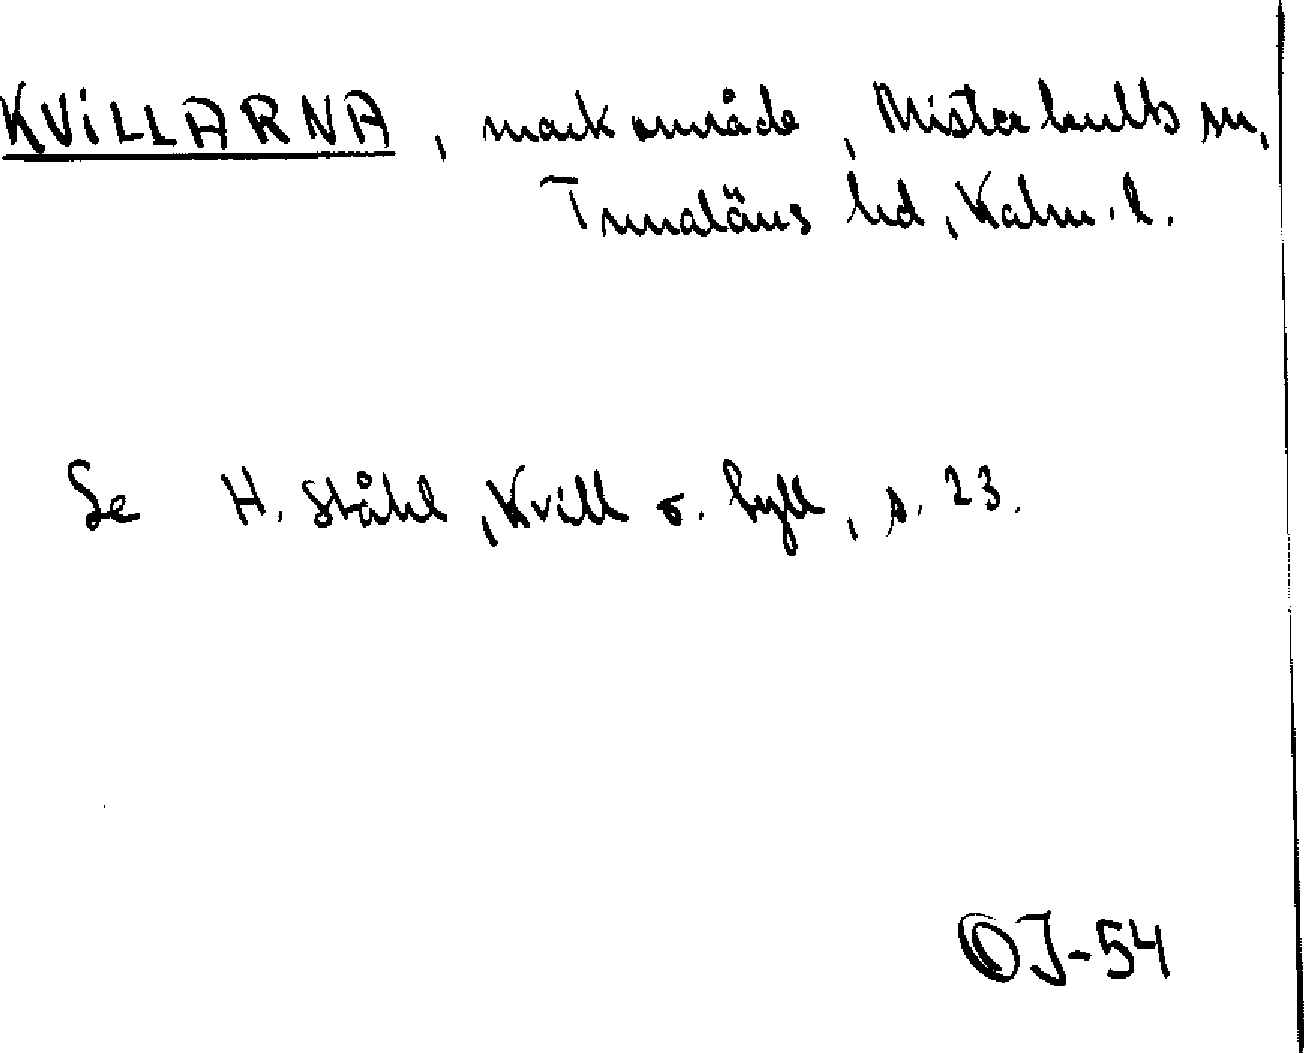 KViLLARNA, markområde, Misterhults sn,
Tunaläns hd, Kalm. l.
Se H. Ståhl, Kvill o. Tyll, s. 23.
OJ-54